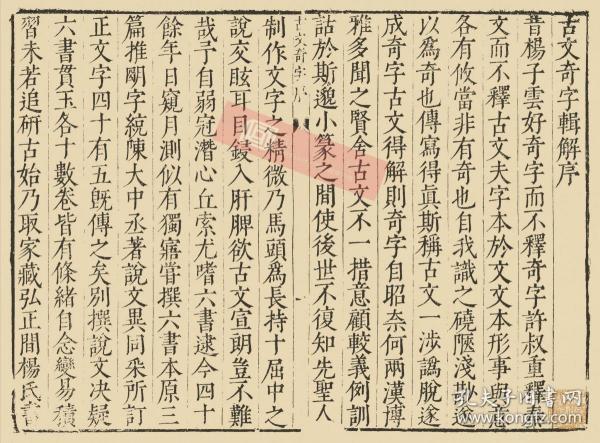 古文奇字輯解序
昔楊子雲好奇字而不釋奇字許叔重釋奇
文而不釋古文夫字本於文文本形事與意
各有攸當非有奇也自我識之磽陿淺尠遂
以為奇也傳寫得眞斯稱古文一涉譌脫遂
成奇字古文得解則奇字自昭奈何兩漢博
雅多聞之賢舍古文不一措意顧較義例訓
詁於斯邈小篆之間使後世不復知先聖人
古文奇字序
制作文字之精微乃馬頭為長持十屈中之
說交眩耳目錽入肝脾欲古文宣朗豈不難
哉予自弱冠潛心丘索尤嗜六書逮今四十
餘年日窺月測似有獨寤嘗撰六書本原三
篇推朙字統陳大中丞著說文異同采所訂
正文字四十有五旣傳之矣別撰說文決疑
六書貫玉各十數卷皆有條緒自念變易積
習未若追研古始乃取家藏弘正間楊氏書
孔夫子旧书网
www.kongfz.com